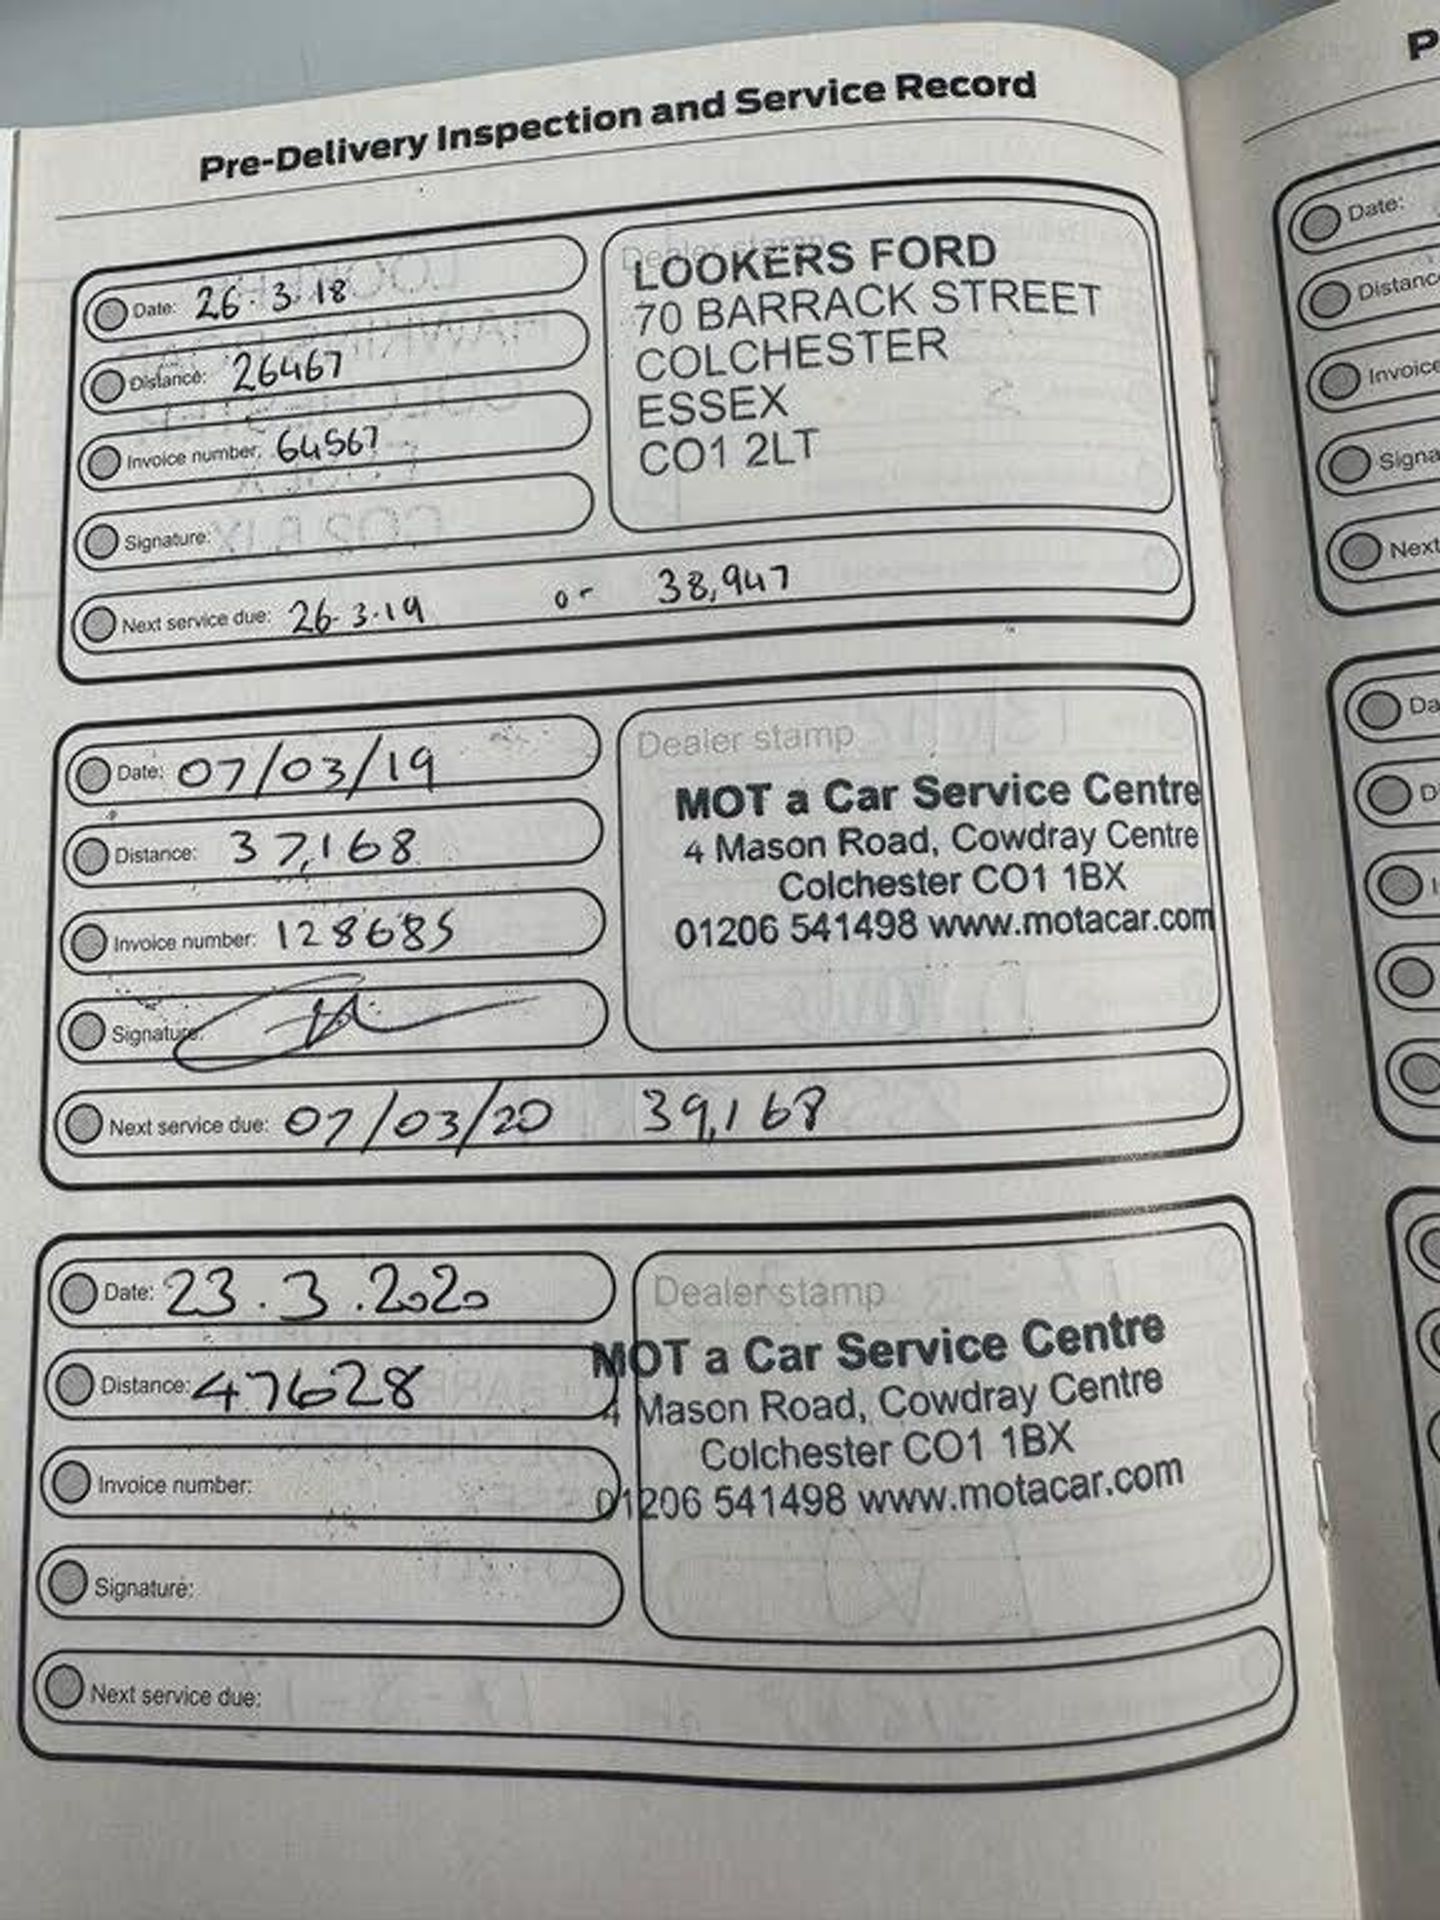 Pre-Delivery Inspection and Service Record
Date: 26.3.18
Distance: 26467
Invoice number: 64567
Signature:
Dealer stamp
LOOKERS FORD
70 BARRACK STREET
COLCHESTER
ESSEX
CO1 2LT
Next service due: 26.3.19 or 38,947
Date: 07/03/19
Distance: 37,168
Invoice number: 128685
Signature:
Dealer stamp
MOT a Car Service Centre
4 Mason Road, Cowdray Centre
Colchester CO1 1BX
01206 541498 www.motacar.com
Next service due: 07/03/20 39,168
Date: 23.3.2020
Distance: 47628
Invoice number:
Signature:
Dealer stamp
MOT a Car Service Centre
4 Mason Road, Cowdray Centre
Colchester CO1 1BX
01206 541498 www.motacar.com
Next service due:
P
Date:
Distanc
Invoice
Signa
Next
Da
D
I